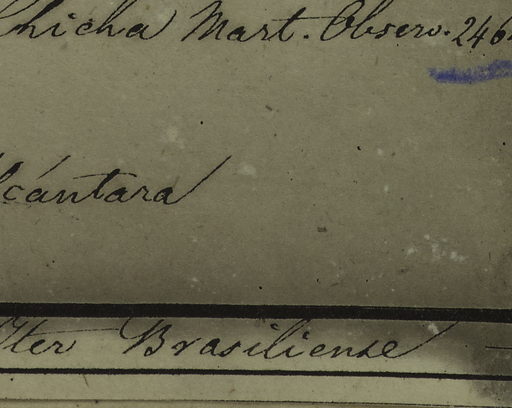 Chicha Mart. Observ. 246
lcántara
Iter Brasiliense